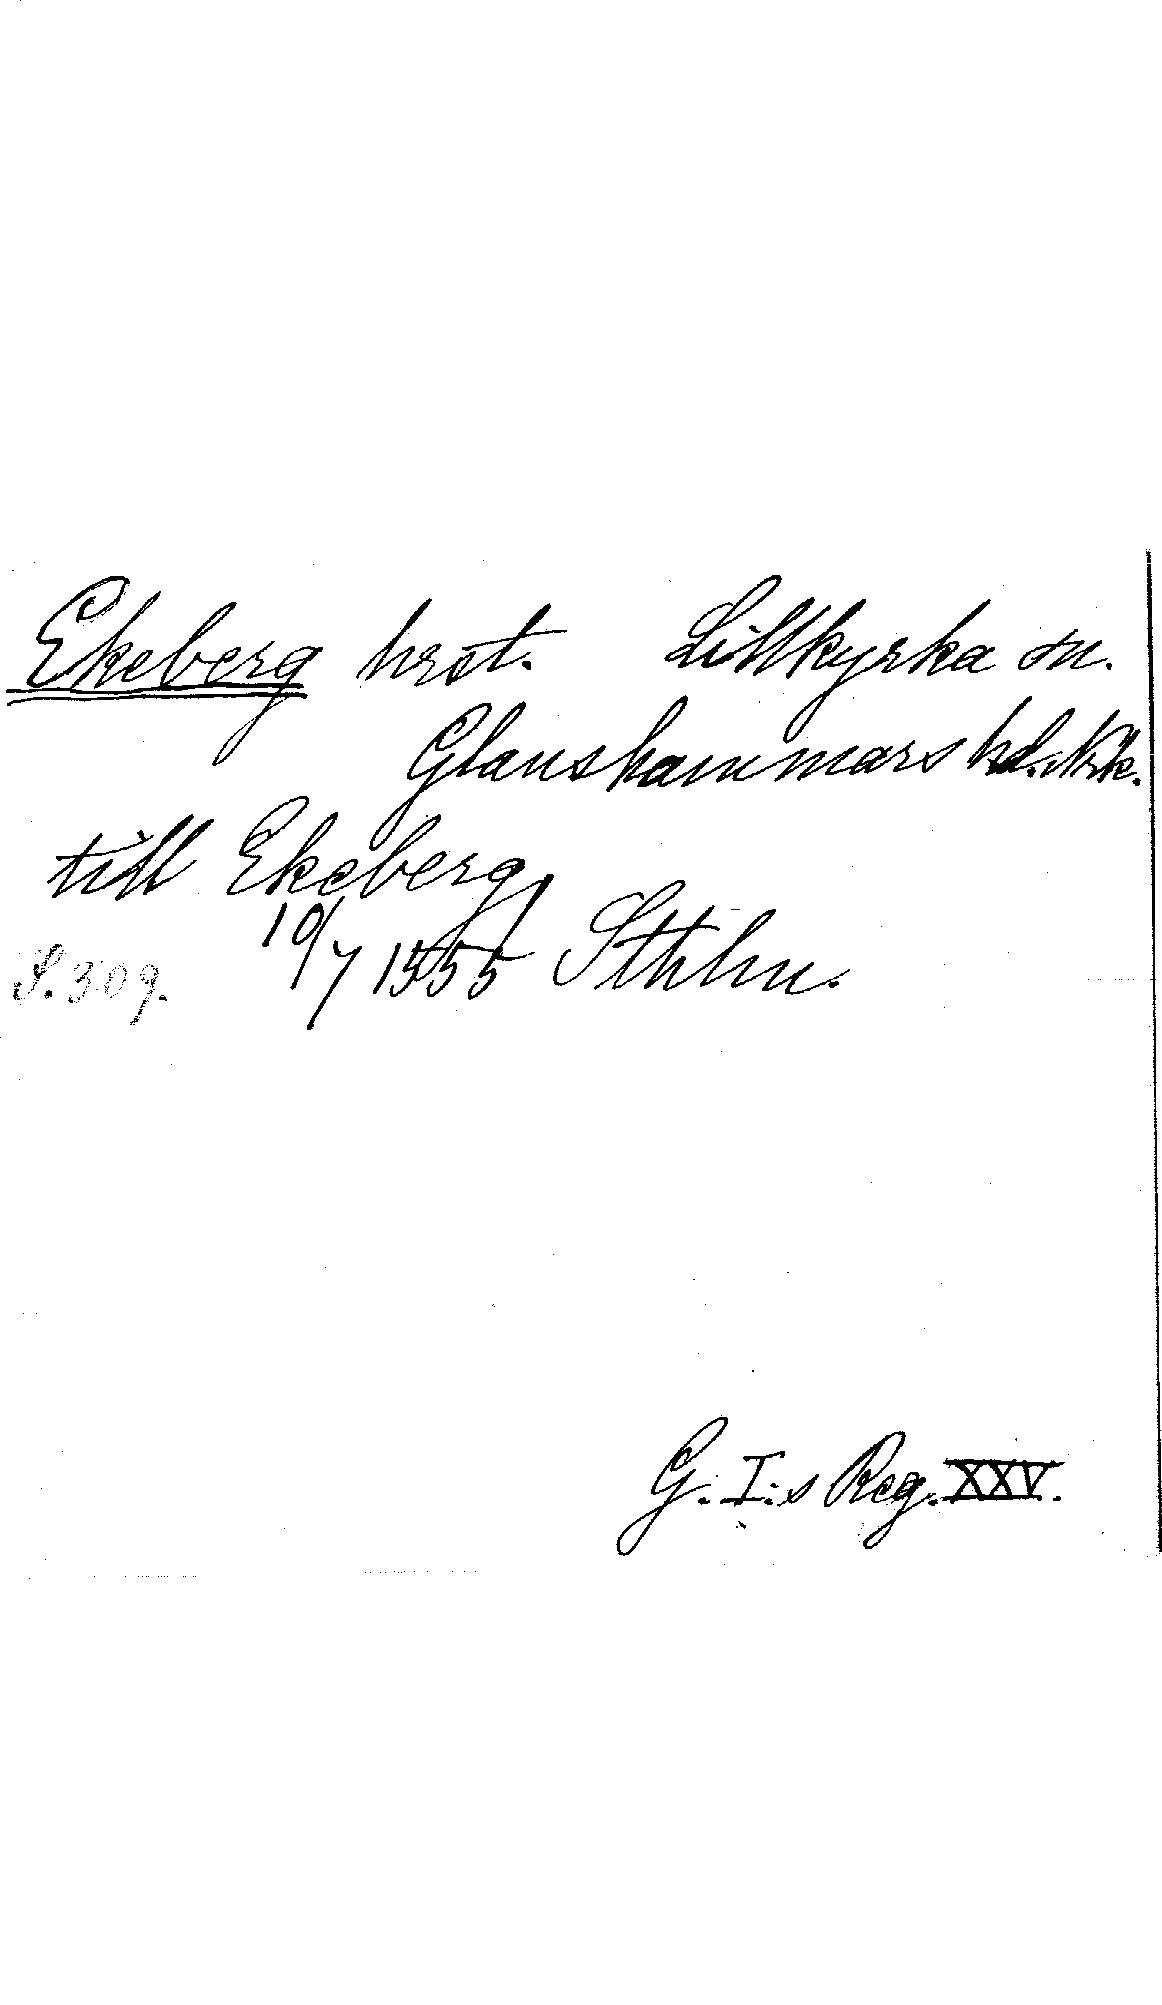 Ekeberg hrst. Lillkyrka sn.
Glanshammars hd. Nrk.
till Ekeberg
S. 309. 10/7 1555 Sthlm.
G. I:s Reg. XXV.